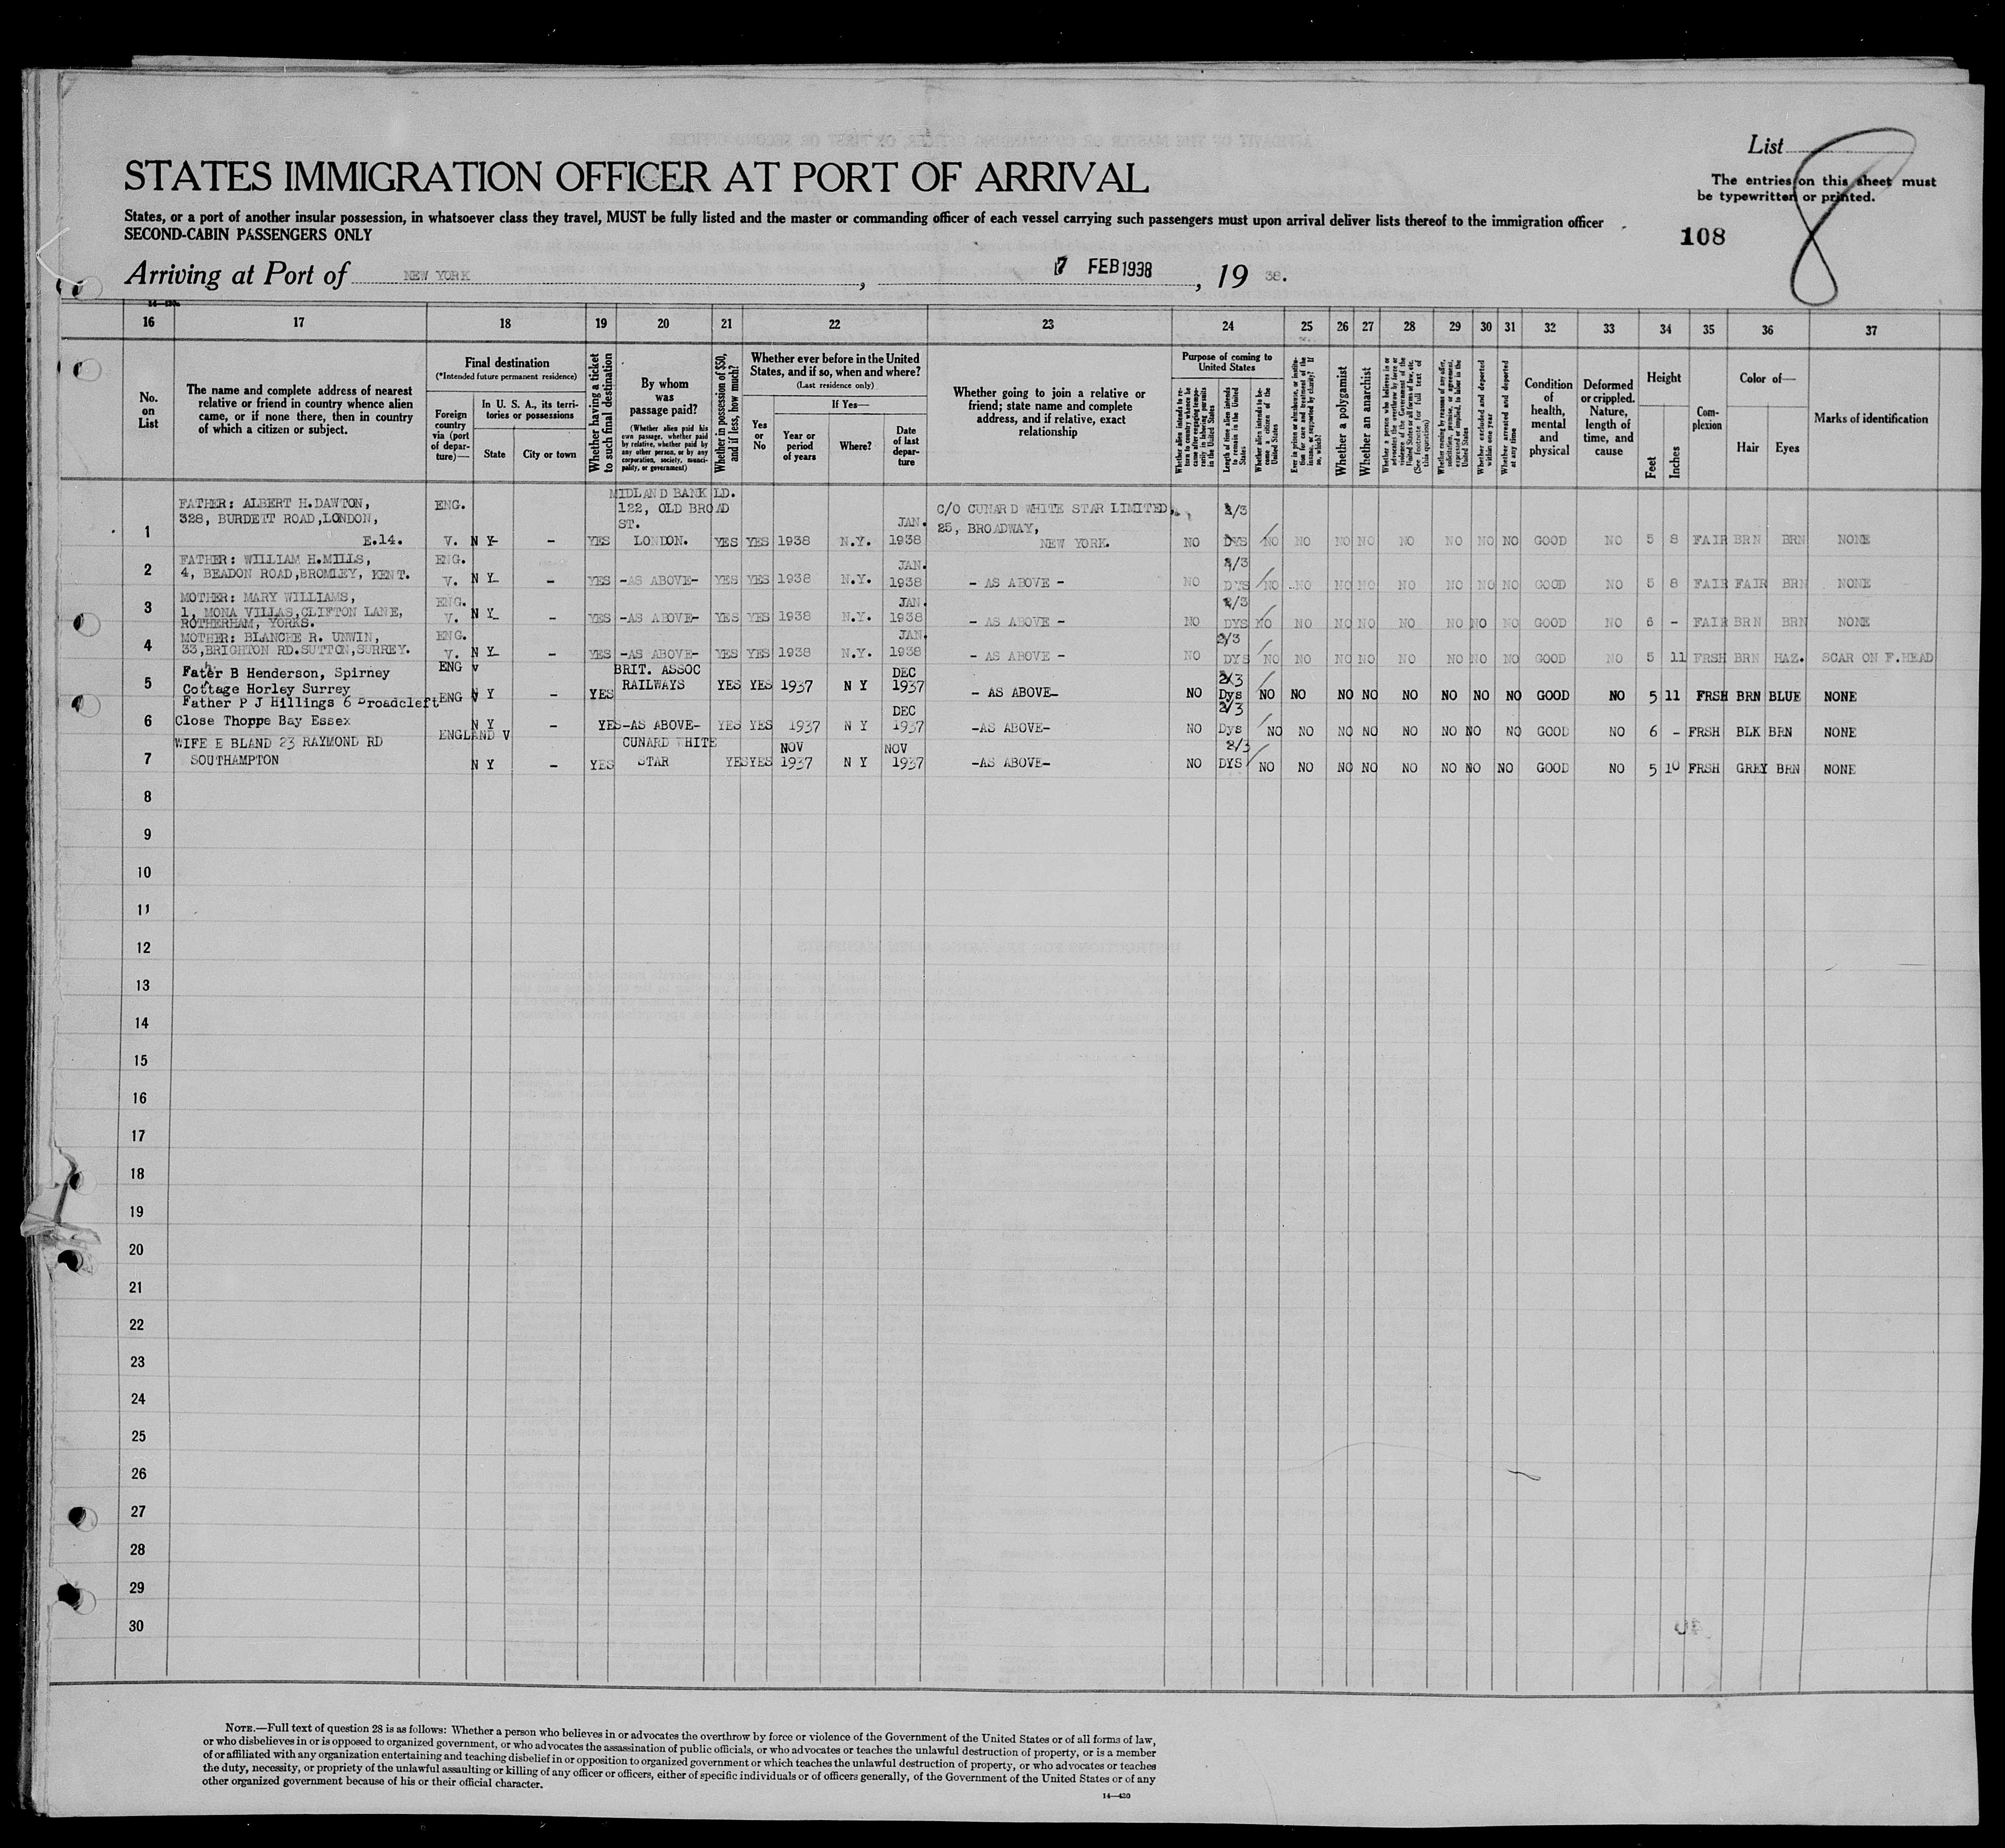 List
8
The entries on this sheet must
be typewritten or printed.
STATES IMMIGRATION OFFICER AT PORT OF ARRIVAL
States, or a port of another insular possession, in whatsoever class they travel, MUST be fully listed and the master or commanding officer of each vessel carrying such passengers must upon arrival deliver lists thereof to the immigration officer
SECOND-CABIN PASSENGERS ONLY
108
Arriving at Port of NEW YORK, 7 FEB 1938, 19 38.
16 17 18 19 20 21 22 23 24 25 26 27 28 29 30 31 32 33 34 35 36 37
No. on List
The name and complete address of nearest relative or friend in country whence alien came, or if none there, then in country of which a citizen or subject.
Final destination
(*Intended future permanent residence)
Foreign country via (port of departure)—
In U. S. A., its territories or possessions
State
City or town
Whether having a ticket to such final destination
By whom was passage paid?
(Whether alien paid his own passage, whether paid by relative, whether paid by any other person, or by any corporation, society, municipality, or government)
Whether in possession of $50, and if less, how much?
Whether ever before in the United States, and if so, when and where?
(Last residence only)
Yes or No
If Yes—
Year or period of years
Where?
Date of last departure
Whether going to join a relative or friend; state name and complete address, and if relative, exact relationship
Purpose of coming to United States
Whether alien intends to return to country whence he came after engaging temporarily in laboring pursuits in the United States
Length of time alien intends to remain in the United States
Whether alien intends to become a citizen of the United States
Ever in prison or almshouse, or institution for care and treatment of the insane, or supported by charity? If so, which?
Whether a polygamist
Whether an anarchist
Whether a person who believes in or advocates the overthrow by force or violence of the Government of the United States or all forms of law, etc. (See footnote for full text of this question)
Whether coming by reason of any offer, solicitation, promise, or agreement, expressed or implied, to labor in the United States
Whether excluded and deported within one year
Whether arrested and deported at any time
Condition of health, mental and physical
Deformed or crippled. Nature, length of time, and cause
Height
Feet
Inches
Complexion
Color of—
Hair
Eyes
Marks of identification
FATHER: ALBERT H.DAWTON, ENG. MIDLAND BANK LD.
328, BURDETT ROAD,LONDON, 122, OLD BROAD C/O CUNARD WHITE STAR LIMITED, 2/3
ST. JAN. 25, BROADWAY,
1 E.14. V. N Y- - YES LONDON. YES YES 1938 N.Y. 1938 NEW YORK. NO DYS NO NO NO NO NO NO NO NO GOOD NO 5 8 FAIR BRN BRN NONE
FATHER: WILLIAM H.MILLS, ENG. JAN. 2/3
2 4, BEADON ROAD,BROMLEY, KENT. V. N Y- - YES -AS ABOVE- YES YES 1938 N.Y. 1938 - AS ABOVE - NO DYS NO NO NO NO NO NO NO NO GOOD NO 5 8 FAIR FAIR BRN NONE
MOTHER: MARY WILLIAMS, ENG. JAN. 2/3
3 1, MONA VILLAS,CLIFTON LANE, V. N Y- - YES -AS ABOVE- YES YES 1938 N.Y. 1938 - AS ABOVE - NO DYS NO NO NO NO NO NO NO NO GOOD NO 6 - FAIR BRN BRN NONE
ROTHERHAM, YORKS.
MOTHER: BLANCHE R. UNWIN, ENG. JAN. 2/3
4 33,BRIGHTON RD.SUTTON,SURREY. V. N Y- - YES -AS ABOVE- YES YES 1938 N.Y. 1938 - AS ABOVE - NO DYS NO NO NO NO NO NO NO NO GOOD NO 5 11 FRSH BRN HAZ. SCAR ON F.HEAD
Father B Henderson, Spirney ENG V BRIT. ASSOC DEC 2/3
5 Cottage Horley Surrey N Y - YES RAILWAYS YES YES 1937 N Y 1937 - AS ABOVE- NO Dys NO NO NO NO NO NO NO NO GOOD NO 5 11 FRSH BRN BLUE NONE
Father P J Hillings 6 Broadcleft ENG V DEC 2/3
6 Close Thoppe Bay Essex N Y - YES -AS ABOVE- YES YES 1937 N Y 1937 -AS ABOVE- NO Dys NO NO NO NO NO NO NO NO GOOD NO 6 - FRSH BLK BRN NONE
WIFE E BLAND 23 RAYMOND RD ENGLAND V CUNARD WHITE NOV NOV 2/3
7 SOUTHAMPTON N Y - YES STAR YES YES 1937 N Y 1937 -AS ABOVE- NO DYS NO NO NO NO NO NO NO NO GOOD NO 5 10 FRSH GREY BRN NONE
8
9
10
11
12
13
14
15
16
17
18
19
20
21
22
23
24
25
26
27
28
29
30
NOTE.—Full text of question 28 is as follows: Whether a person who believes in or advocates the overthrow by force or violence of the Government of the United States or of all forms of law,
or who disbelieves in or is opposed to organized government, or who advocates the assassination of public officials, or who advocates or teaches the unlawful destruction of property, or is a member
of or affiliated with any organization entertaining and teaching disbelief in or opposition to organized government or which teaches the unlawful destruction of property, or who advocates or teaches
the duty, necessity, or propriety of the unlawful assaulting or killing of any officer or officers, either of specific individuals or of officers generally, of the Government of the United States or of any
other organized government because of his or their official character.
14—420